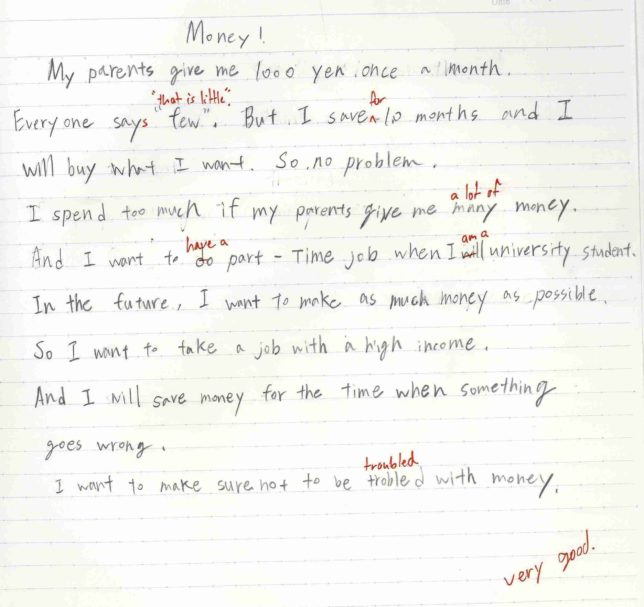 Money!
My parents give me 1000 yen once a month.
"that is little".
Every one says "few". But I save for 10 months and I
will buy what I want. So no problem.
a lot of
I spend too much if my parents give me many money.
have a am a
And I want to do part-Time job when I will university student.
In the future, I want to make as much money as possible.
So I want to take a job with a high income.
And I will save money for the time when something
goes wrong.
troubled
I want to make sure not to be trobled with money.
very good.